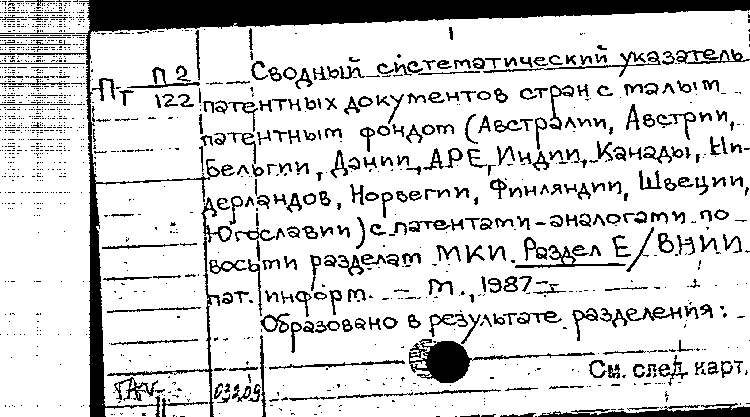 Пт П2
122
Сводный систематический указатель
патентных документов стран с малым
патентным фондом (Австралии, Австрии,
Бельгии, Дании, АРЕ, Индии, Канады, Ни-
дерландов, Норвегии, Финляндии, Швеции,
Югославии) с патентами-аналогами по
восьми разделам МКИ. Раздел Е / ВНИИ
пат. информ. – М., 1987-.
Образовано в результате разделения:
См. след. карт.